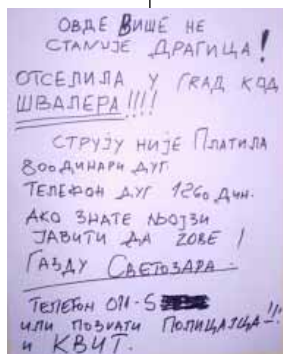 ОВДЕ ВИШЕ НЕ
СТАНУЈЕ ДРАГИЦА!
ОТСЕЛИЛА У ГРАД КОД
ШВАЛЕРА!!!!
СТРУЈУ НИЈЕ ПЛАТИЛА
800 ДИНАРИ ДУГ.
ТЕЛЕФОН ДУГ 1260 ДИН.
АКО ЗНАТЕ ЊОЈЗИ
ЈАВИТИ ДА ZОВЕ!
ГАЗДУ СВЕТОЗАРА.
ТЕЛЕФОН 011-5
ИЛИ ПОЗВАТИ ПОЛИЦАЈЦА!!
И КВИТ.